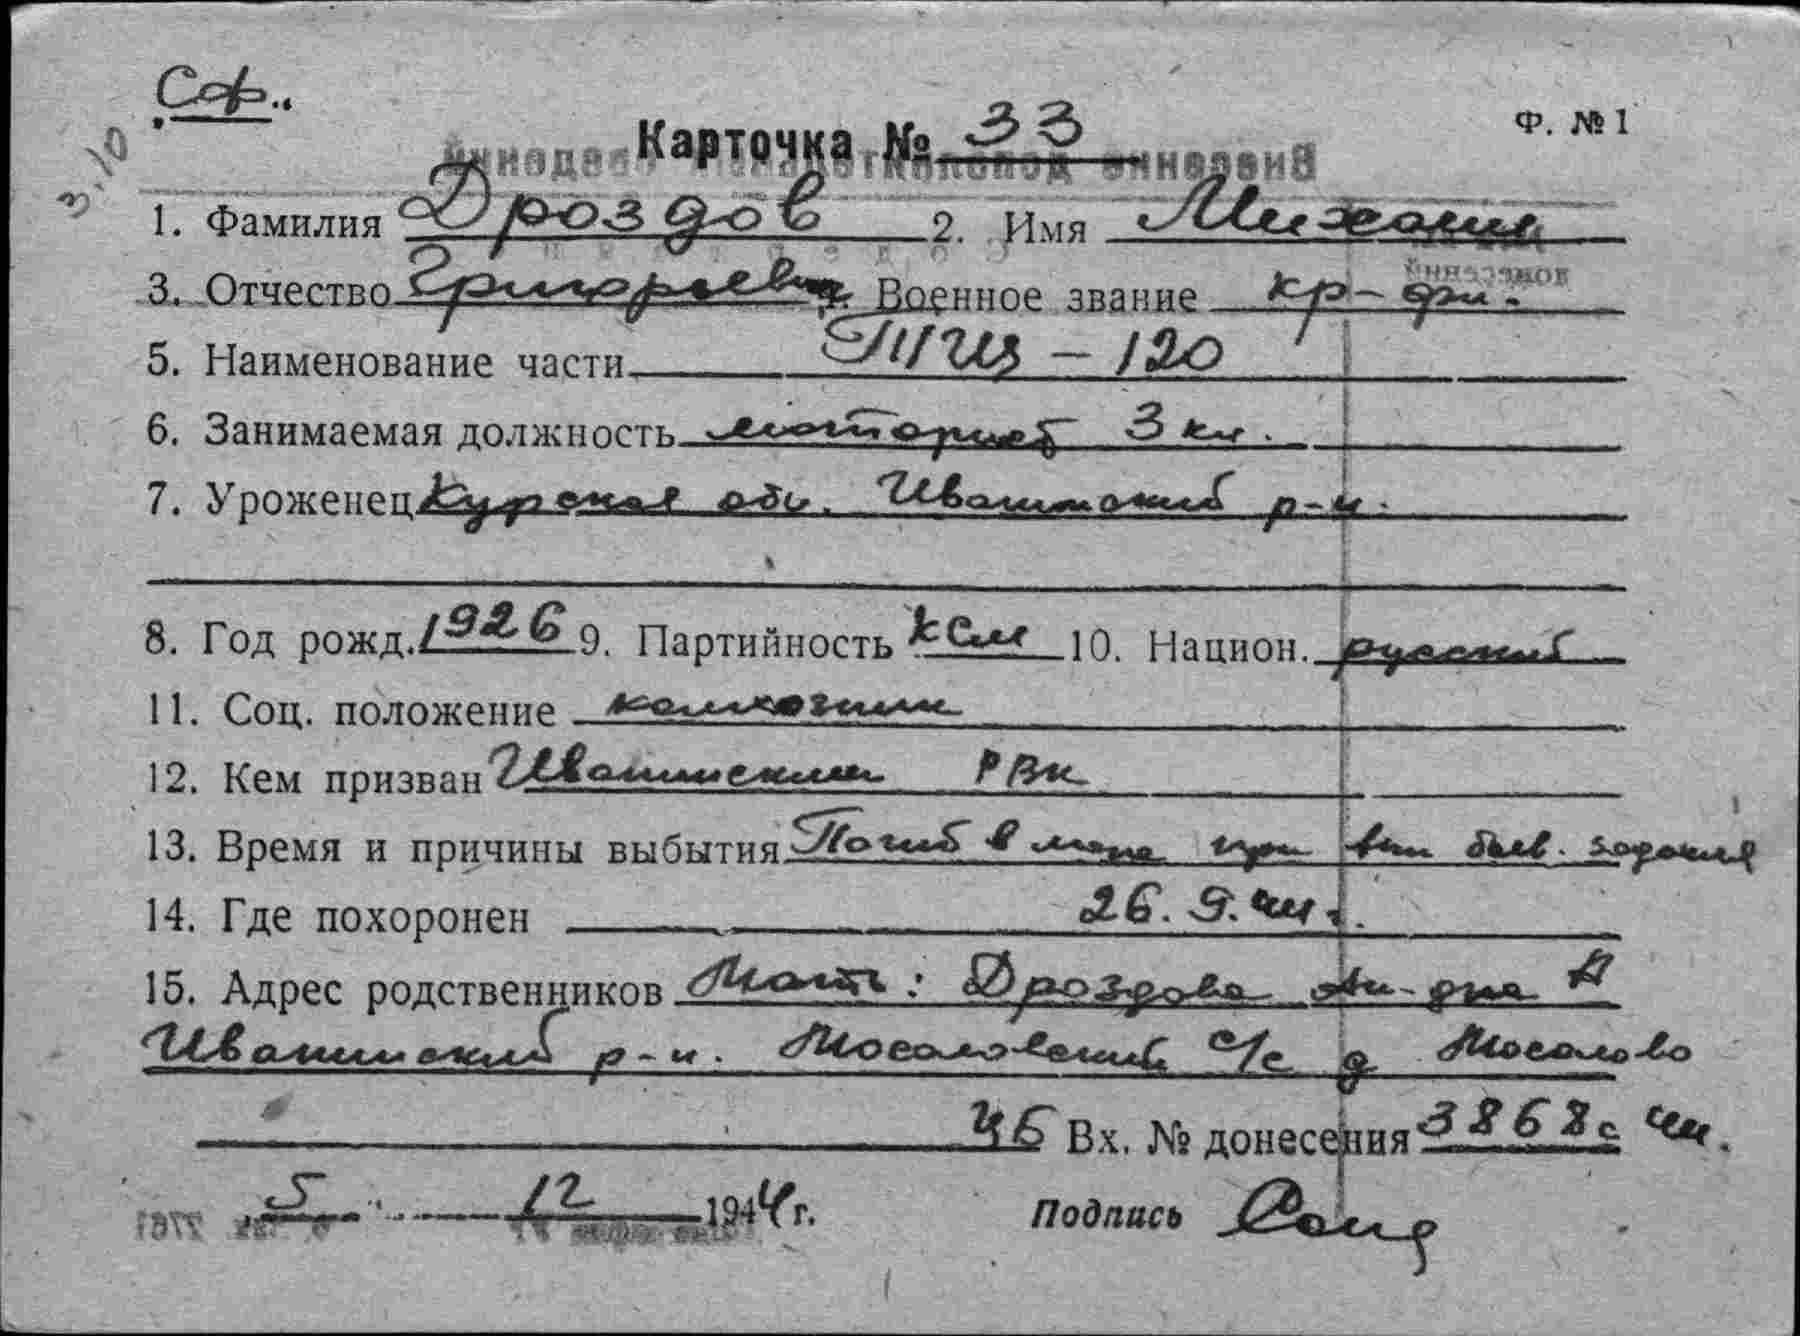 Соф..
3.10
Ф. № 1
Карточка № 33
1. Фамилия Дроздов 2. Имя Михаил
3. Отчество Григорьевич. Военное звание кр-фл.
5. Наименование части ТЩ - 120
6. Занимаемая должность моторист 3 кл.
7. Уроженец Курская обл. Иванинский р-н.
8. Год рожд. 1926 9. Партийность ксм 10. Национ. русский
11. Соц. положение колхозник
12. Кем призван Иванинским РВК
13. Время и причины выбытия Погиб в море при вып боев. задания
14. Где похоронен 26.9.44 г.
15. Адрес родственников Мать: Дроздова А
Иванинский р-н. Мосоловский с/с д Мосолово
Вх. № донесения 3868с 44.
5 12 1944 г. Подпись